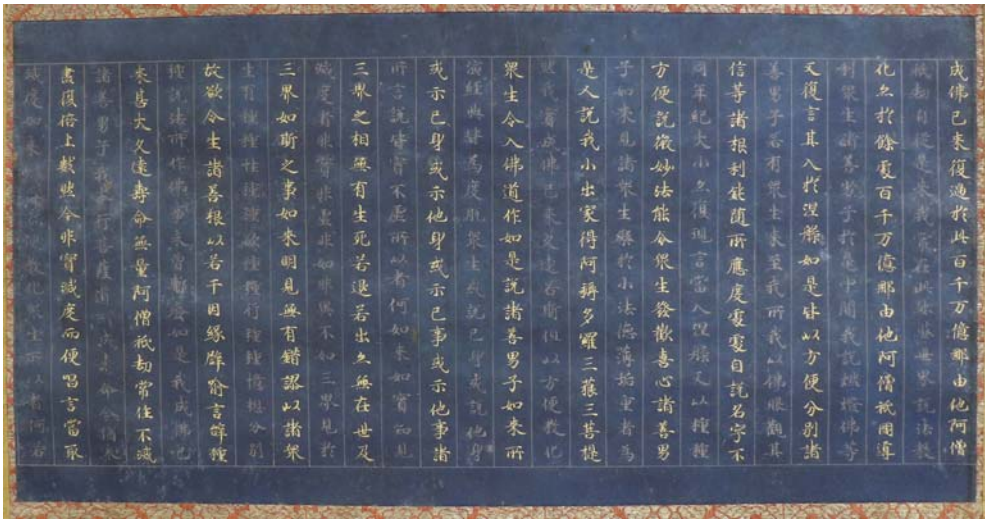 成佛已來復過於此百千万億那由他阿僧
祇劫自從是來我常在此娑婆世界說法教
化亦於餘處百千万億那由他阿僧祇國導
利眾生諸善男子於是中間我說燃燈佛等
又復言其入於涅槃如是皆以方便分別諸
善男子若有眾生來至我所我以佛眼觀其
信等諸根利鈍隨所應度處處自說名字不
同年紀大小亦復現言當入涅槃又以種種
方便說微妙法能令眾生發歡喜心諸善男
子如來見諸眾生樂於小法德薄垢重者為
是人說我小出家得阿耨多羅三藐三菩提
然我實成佛已來久遠若斯但以方便教化
眾生令入佛道作如是說諸善男子如來所
演經典皆為度脫眾生或說己身或說他身
或示己身或示他身或示己事或示他事諸
所言說皆實不虛所以者何如來如實知見
三界之相無有生死若退若出亦無在世及
滅度者非實非虛非如非異不如三界見於
三界如斯之事如來明見無有錯謬以諸眾
生有種種性種種欲種種行種種憶想分別
故欲令生諸善根以若干因緣譬喻言辭種
種說法所作佛事未曾暫廢如是我成佛已
來甚大久遠壽命無量阿僧祇劫常住不滅
諸善男子我本行菩薩道所成壽命今猶未
盡復倍上數然今非實滅度而便唱言當取
滅度如來以是方便教化眾生所以者何若